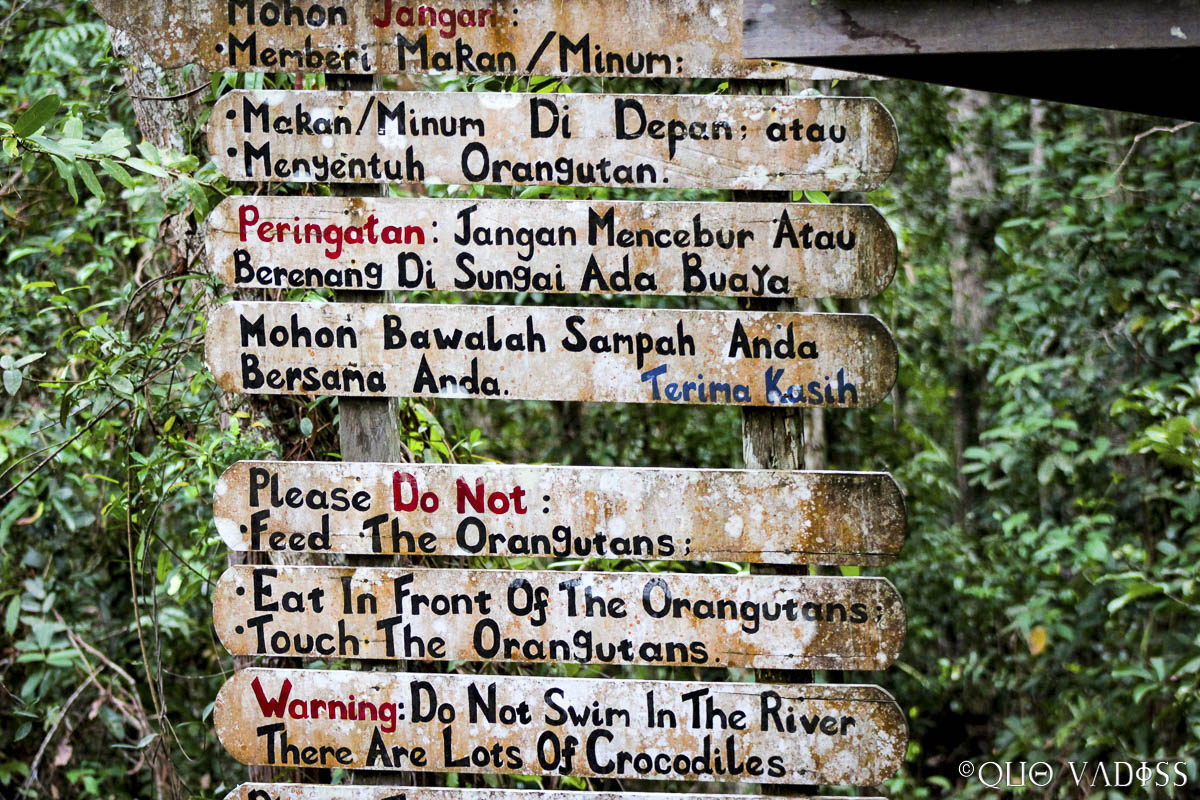 Mohon Jangan :
•Memberi Makan/Minum;
•Makan/Minum Di Depan; atau
•Menyentuh Orangutan.
Peringatan: Jangan Mencebur Atau
Berenang Di Sungai Ada Buaya
Mohon Bawalah Sampah Anda
Bersama Anda. Terima Kasih
Please Do Not :
•Feed The Orangutans;
•Eat In Front Of The Orangutans;
•Touch The Orangutans.
Warning: Do Not Swim In The River
There Are Lots Of Crocodiles.
©QUO VADISS